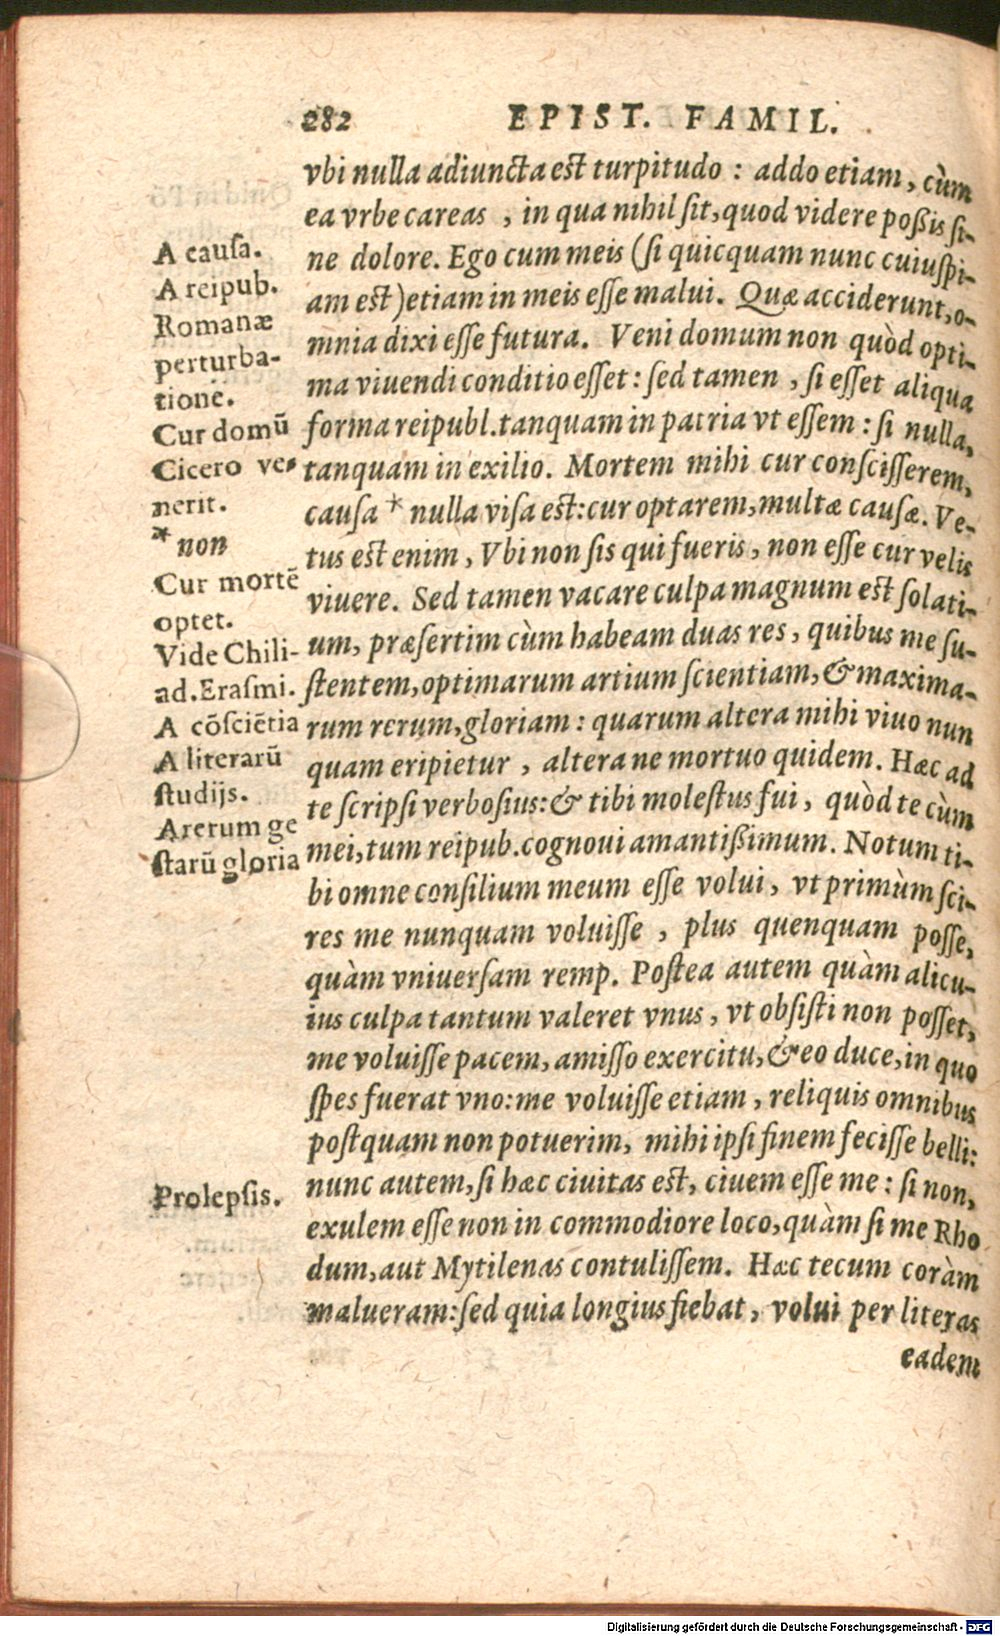 282 EPIST. FAMIL.
vbi nulla adiuncta est turpitudo : addo etiam, cùm
ea vrbe careas , in qua nihil sit, quod videre poßis si-
ne dolore. Ego cum meis (si quicquam nunc cuiuspi-
am est) etiam in meis esse malui. Quæ acciderunt, o-
mnia dixi esse futura. Veni domum non quòd opti-
ma viuendi conditio esset: sed tamen , si esset aliqua
forma reipubl. tanquam in patria vt essem : si nulla,
tanquam in exilio. Mortem mihi cur conscisserem,
causa * nulla visa est: cur optarem, multæ causæ. Ve-
tus est enim, Vbi non sis qui fueris, non esse cur velis
viuere. Sed tamen vacare culpa magnum est solati-
um, præsertim cùm habeam duas res, quibus me su-
stentem, optimarum artium scientiam, & maxima-
rum rerum, gloriam : quarum altera mihi viuo nun
quam eripietur , altera ne mortuo quidem. Hæc ad
te scripsi verbosius: & tibi molestus fui, quòd te cùm
mei, tum reipub. cognoui amantißimum. Notum ti-
bi omne consilium meum esse volui, vt primùm sci-
res me nunquam voluisse , plus quenquam posse,
quàm vniuersam remp. Postea autem quàm alicu-
ius culpa tantum valeret vnus, vt obsisti non posset,
me voluisse pacem, amisso exercitu, & eo duce, in quo
spes fuerat vno: me voluisse etiam, reliquis omnibus
postquam non potuerim, mihi ipsi finem fecisse belli:
nunc autem, si hæc ciuitas est, ciuem esse me : si non,
exulem esse non in commodiore loco, quàm si me Rho
dum, aut Mytilenas contulissem. Hæc tecum coràm
malueram: sed quia longius fiebat, volui per literas
eadem
A causa.
A reipub.
Romanæ
perturba-
tione.
Cur domũ
Cicero ve-
nerit.
* non
Cur mortẽ
optet.
Vide Chili-
ad. Erasmi.
A cõsciẽtia
A literarũ
studijs.
A rerum ge
starũ gloria
Prolepsis.
Digitalisierung gefördert durch die Deutsche Forschungsgemeinschaft - DFG